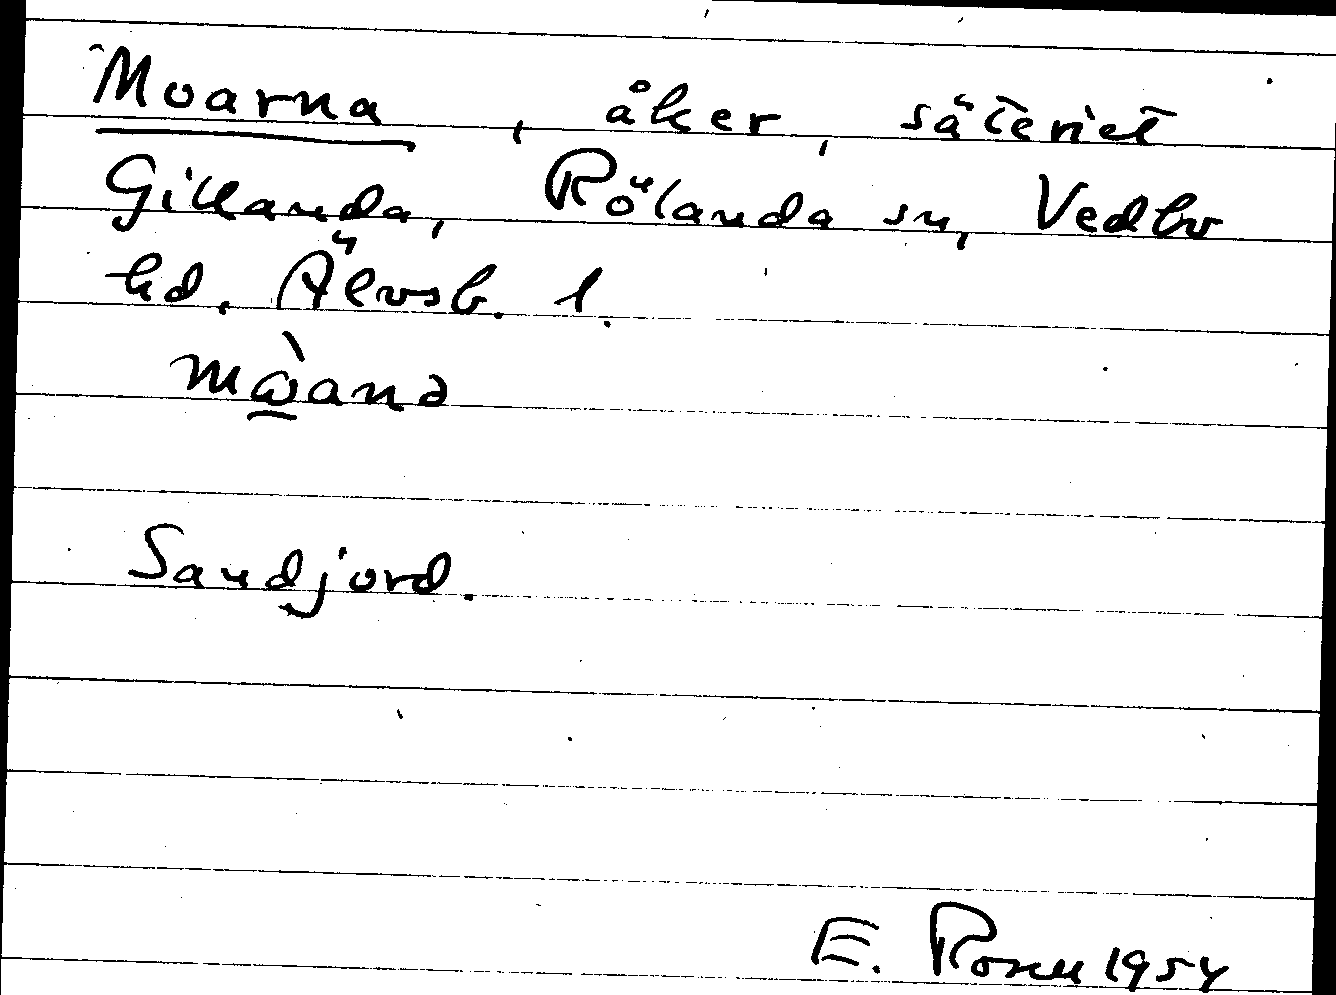 Moarna, åker, säteriet
Gillanda, Rölanda sn, Vedbo
hd. Älvsb. l.
mὼ̱anə
Sandjord.
E. Rosell 1954